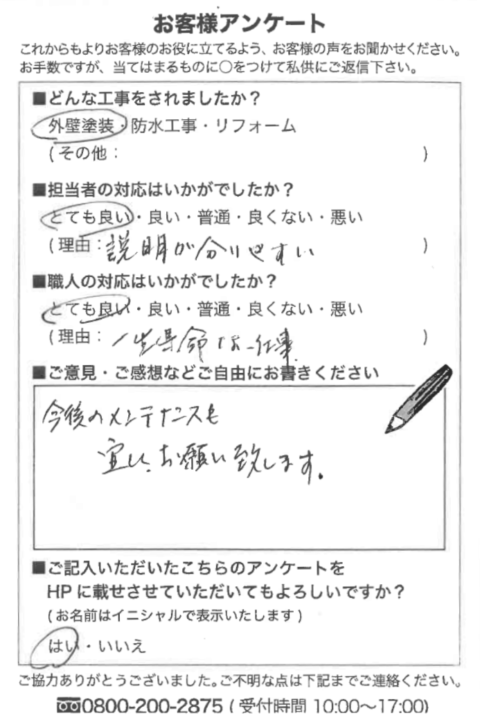 お客様アンケート
これからもよりお客様のお役に立てるよう、お客様の声をお聞かせください。
お手数ですが、当てはまるものに〇をつけて私供にご返信下さい。
■どんな工事をされましたか？
外壁塗装・防水工事・リフォーム
(その他： )
■担当者の対応はいかがでしたか？
とても良い・良い・普通・良くない・悪い
(理由：説明が分りやすい )
■職人の対応はいかがでしたか？
とても良い・良い・普通・良くない・悪い
(理由：一生懸命なお仕事 )
■ご意見・ご感想などご自由にお書きください
今後のメンテナンスも
宜しくお願い致します。
■ご記入いただいたこちらのアンケートを
HPに載せさせていただいてもよろしいですか？
(お名前はイニシャルで表示いたします)
はい・いいえ
ご協力ありがとうございました。ご不明な点は下記までご連絡ください。
0800-200-2875 (受付時間 10:00〜17:00)